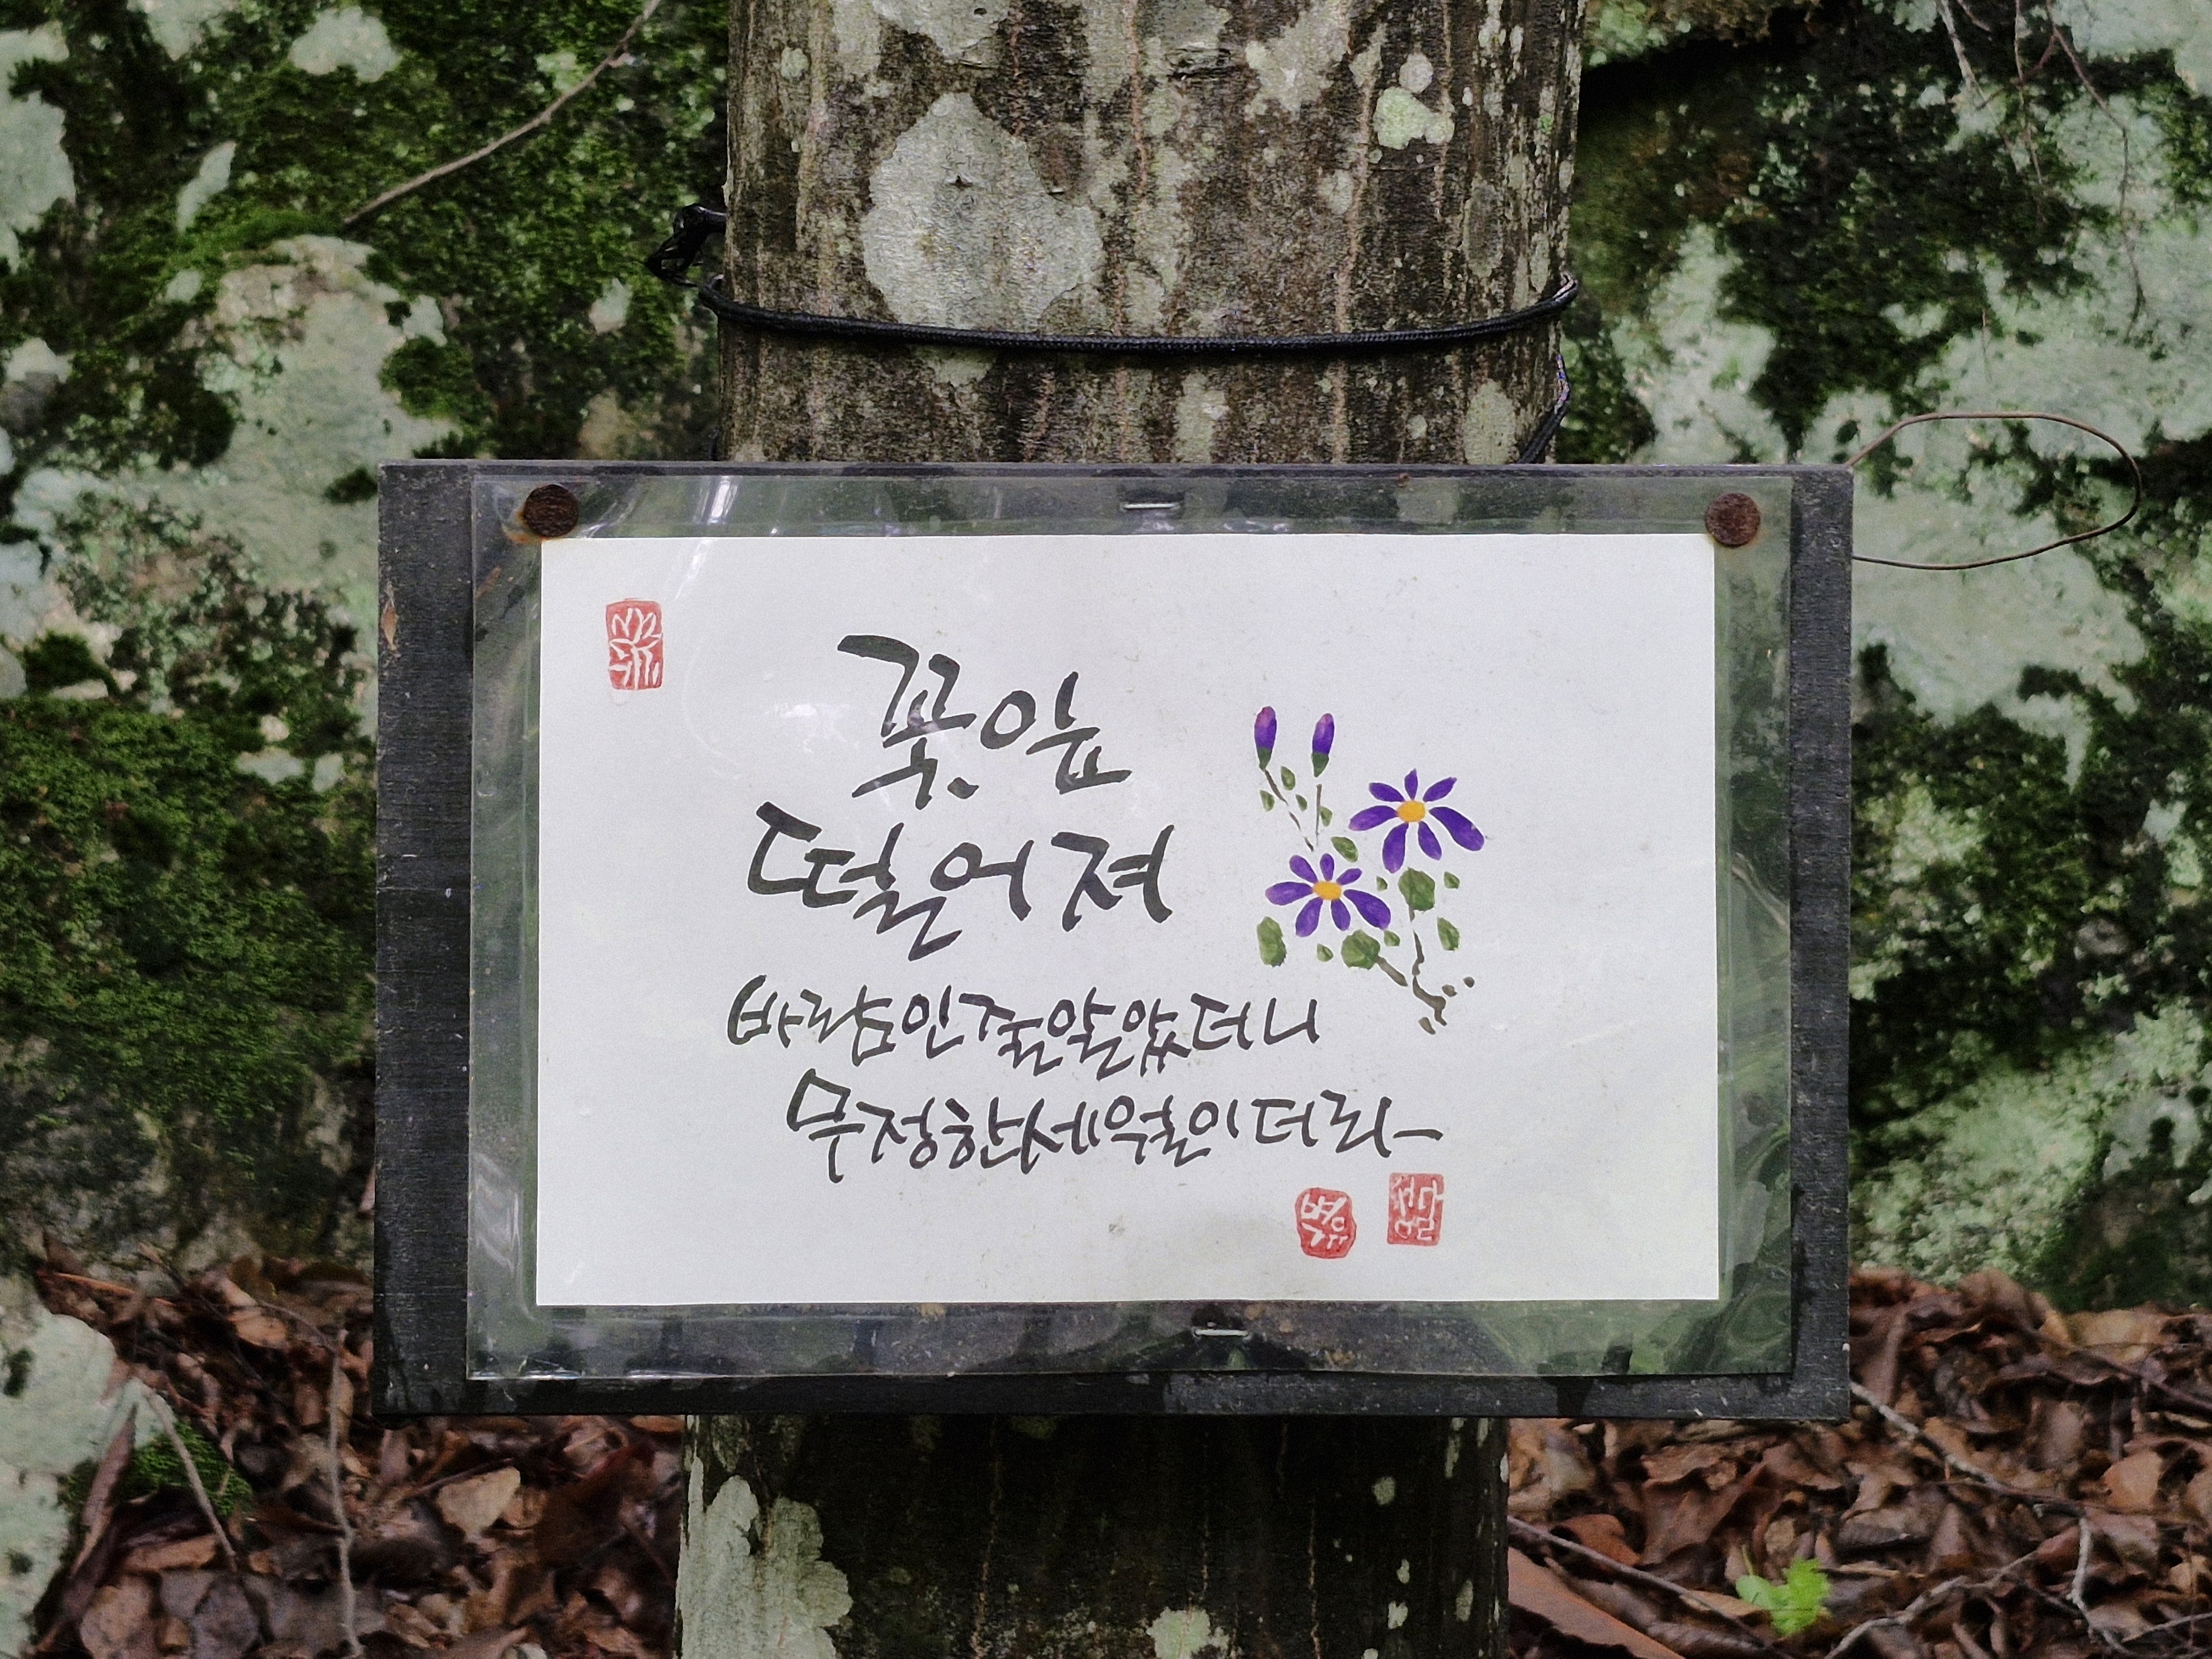 꽃잎
떨어져
바람인줄알았더니
무정한세월이더라